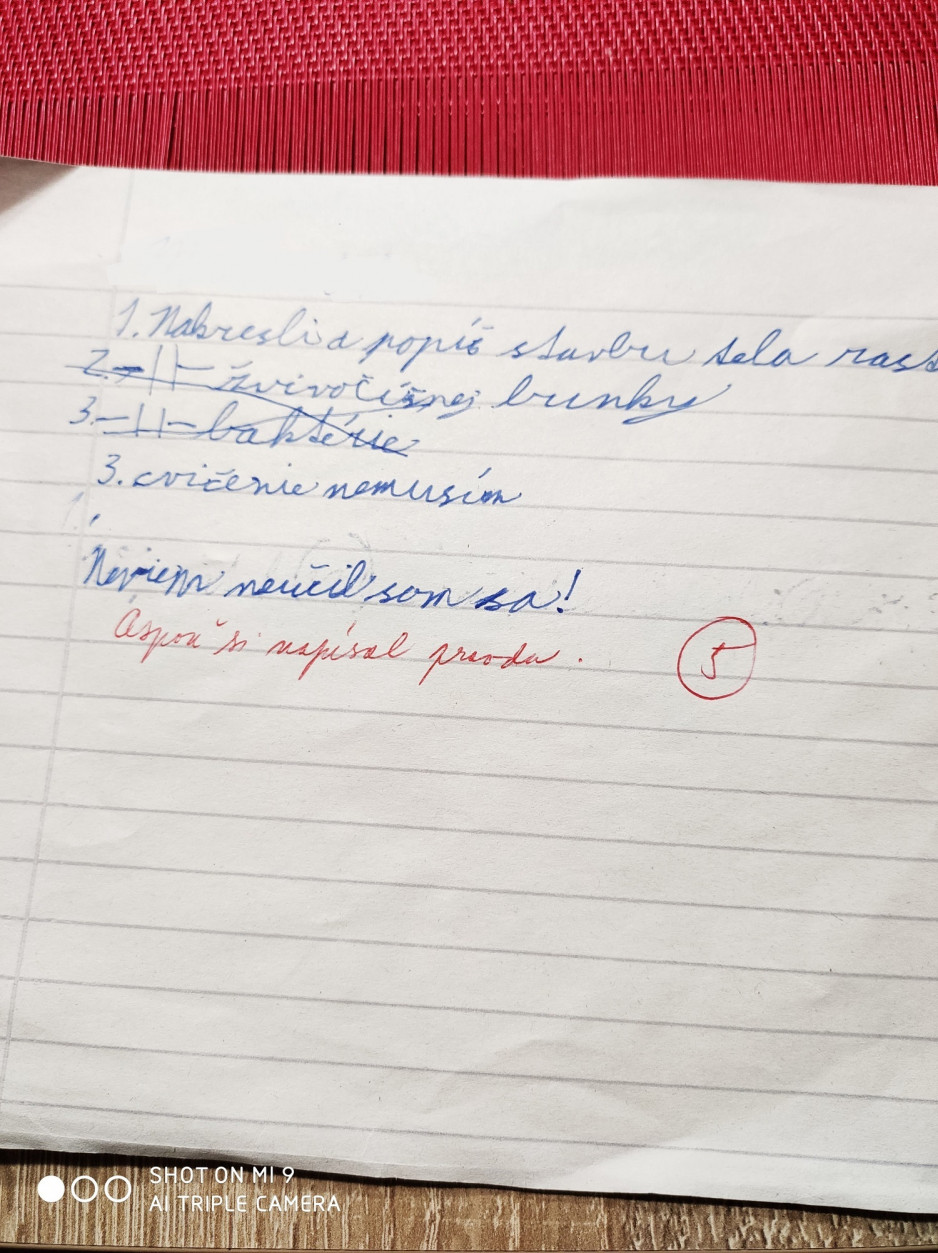 1. Nakresli a popíš stavbu tela rast
2. -||- živočíšnej bunky
3. -||- baktérie
3. cvičenie nemusím
Neviem neučil som sa!
Aspoň si napísal pravdu. 5
SHOT ON MI 9
AI TRIPLE CAMERA